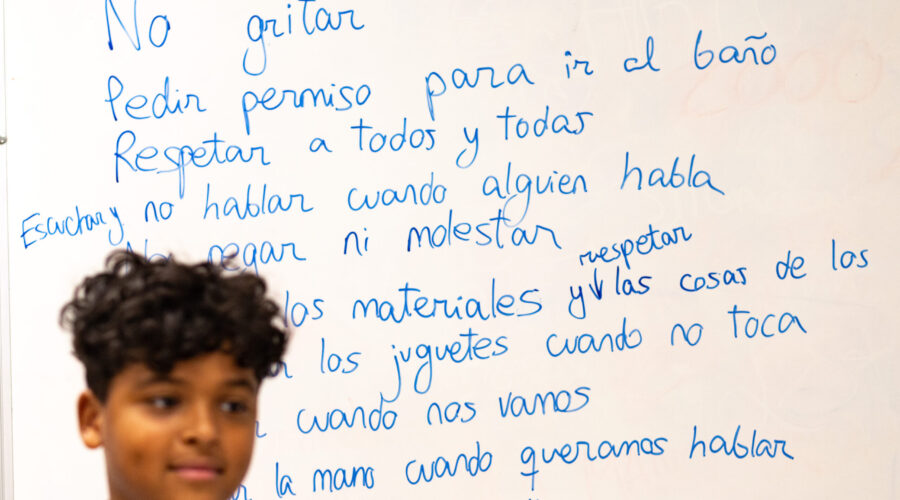 No gritar
Pedir permiso para ir al baño
Respetar a todos y todas
Escuchar y no hablar cuando alguien habla
No pegar ni molestar
respetar
los materiales y ↓ las cosas de los
los juguetes cuando no toca
cuando nos vamos
la mano cuando queramos hablar